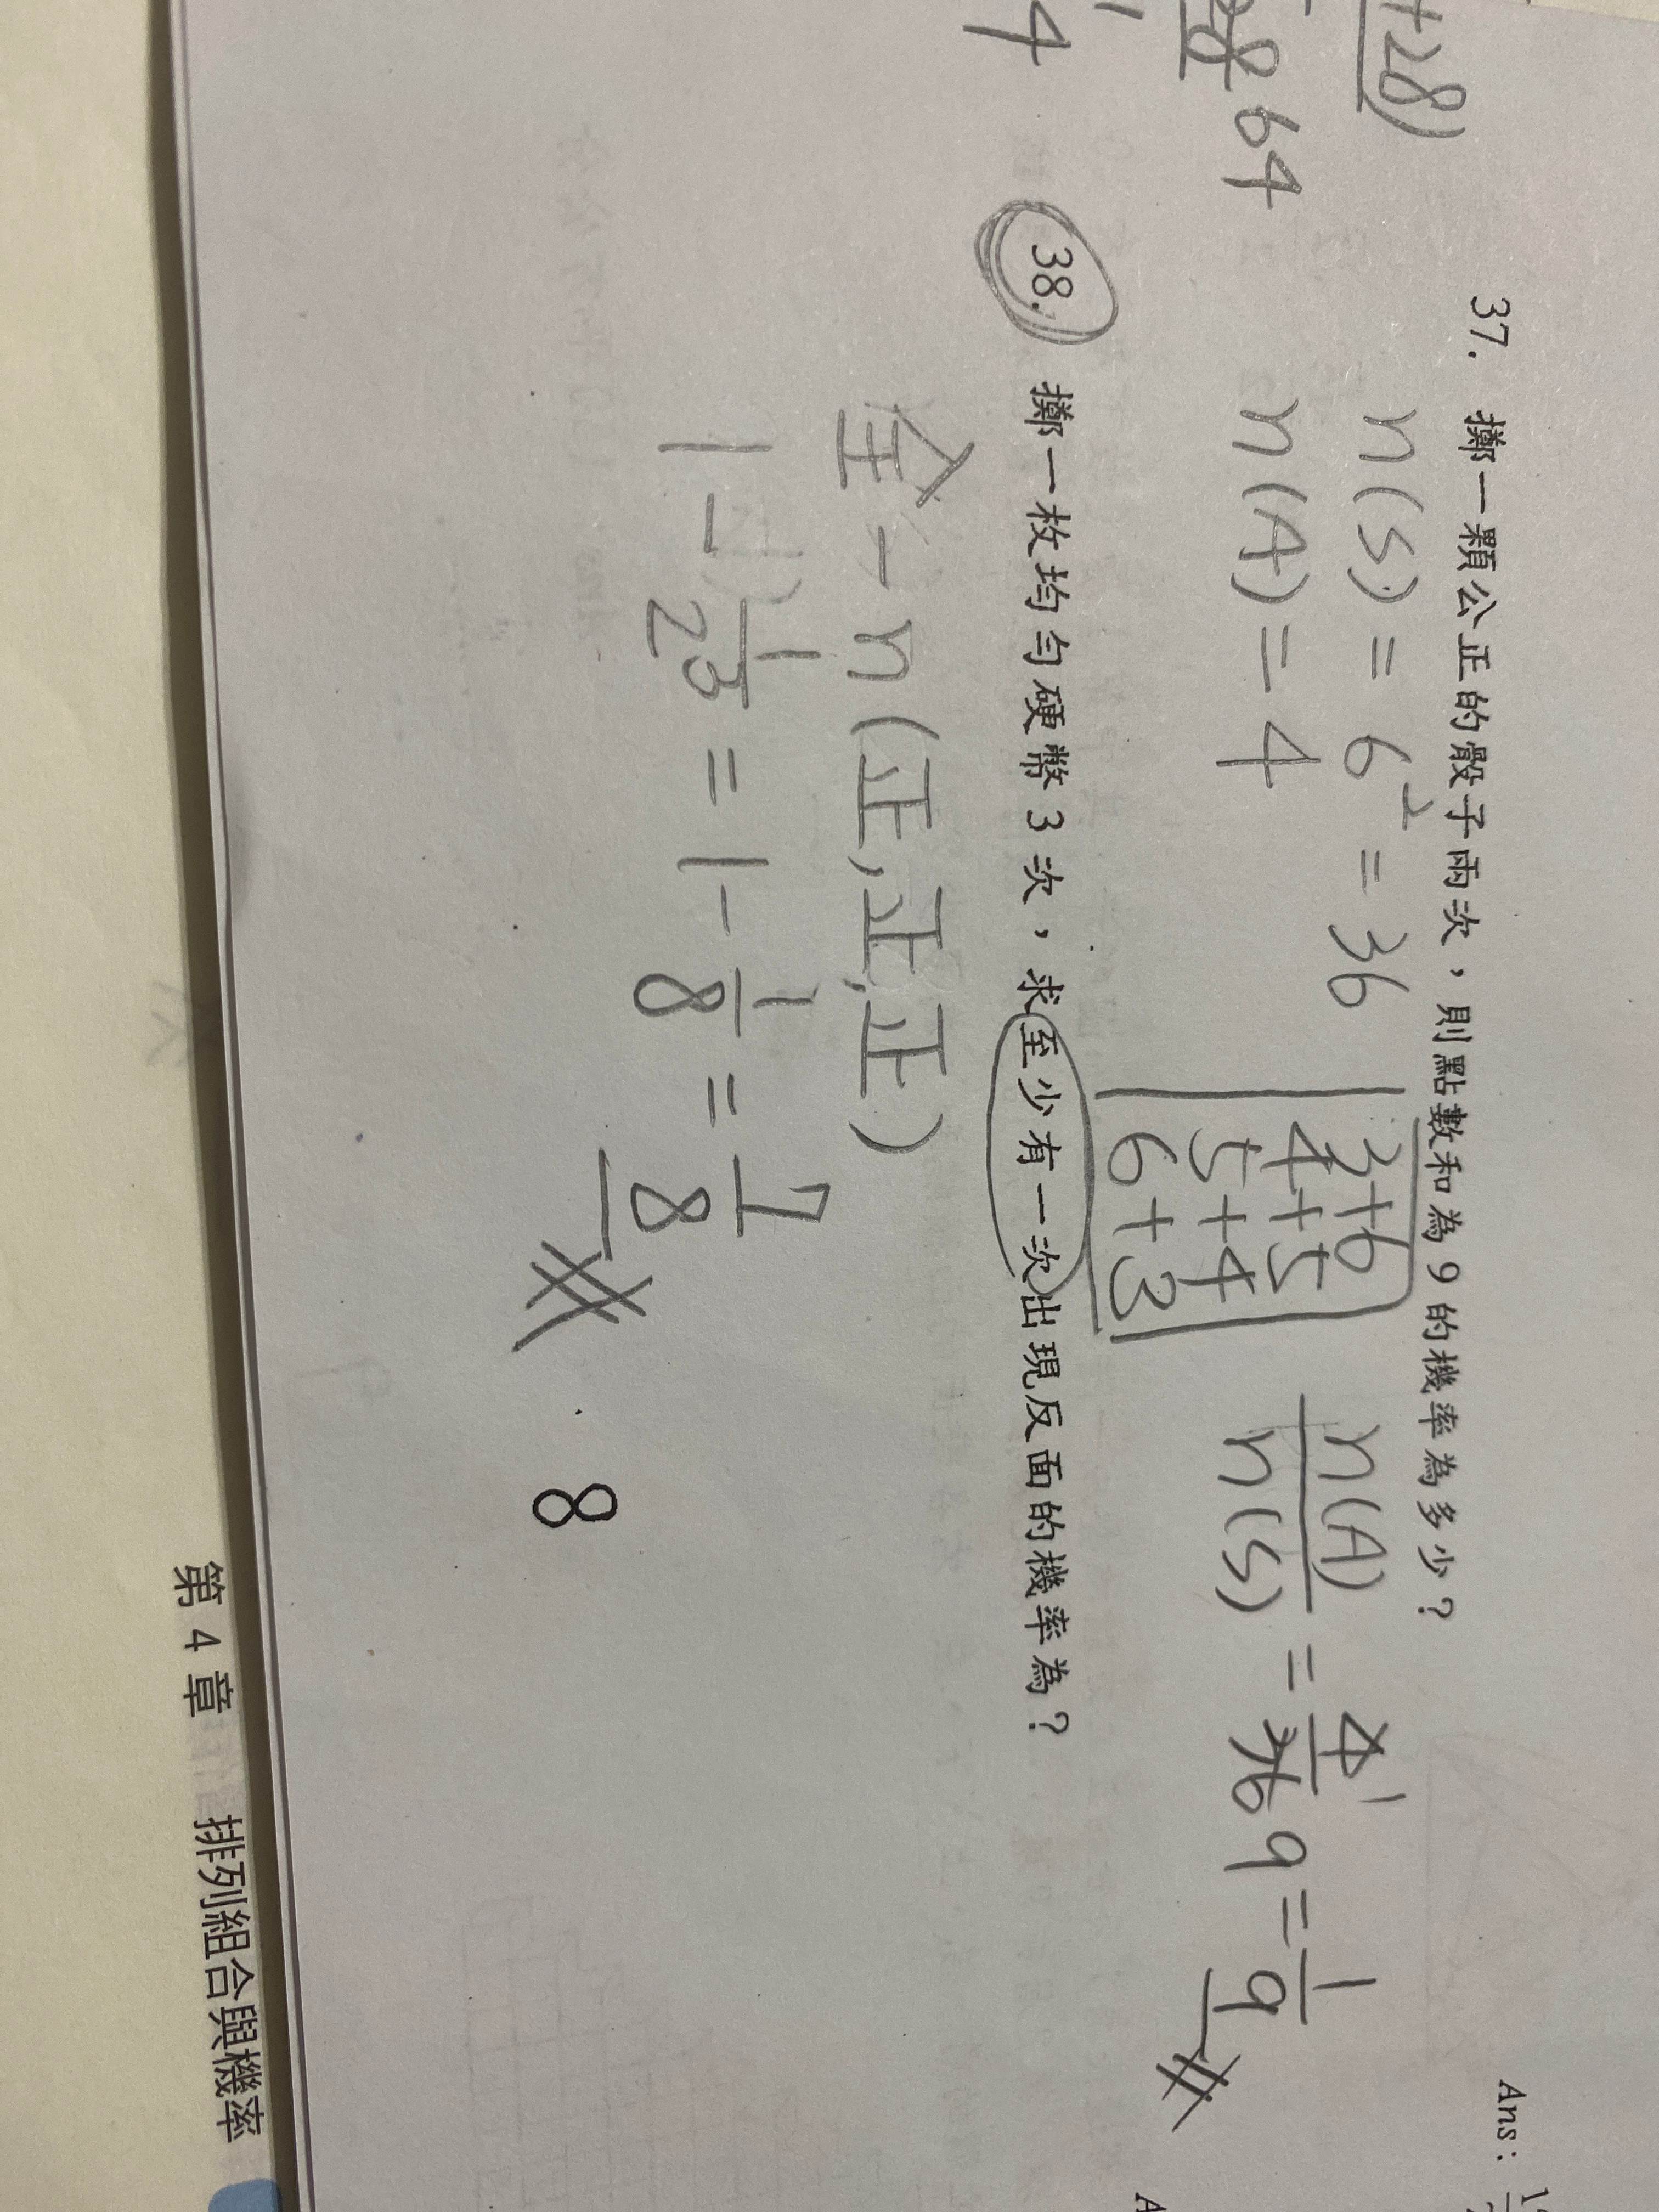 +28)
28 64
4
37. 擲一顆公正的骰子兩次，則點數和為 9 的機率為多少？
n(S) = 6² = 36
n(A) = 4
3+6
4+5
5+4
6+3
n(A)/n(S) = 4/36 1 9 = 1/9
Ans:
38. 擲一枚均勻硬幣 3 次，求至少有一次出現反面的機率為？
全 - n(正,正,正)
1 - 1/2³ = 1 - 1/8 = 7/8
8
第 4 章 排列組合與機率